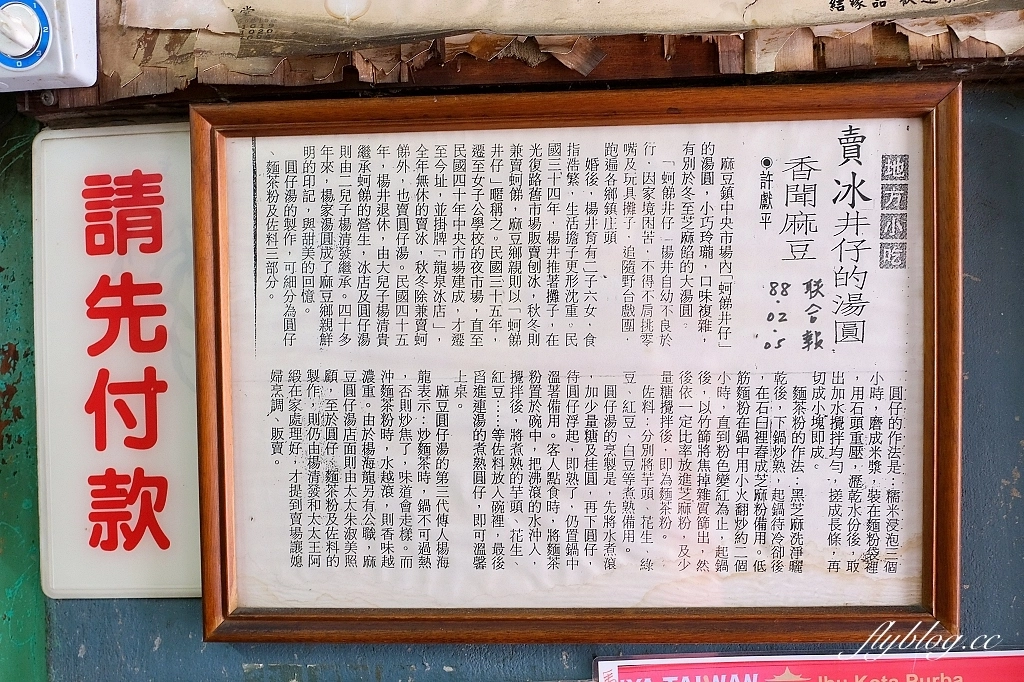 結緣品
請先付款
地方小吃
賣冰井仔的湯圓
香聞麻豆
●許獻平
聯合報
88.02.05
麻豆鎮中央市場內「蚵俤井仔」
的湯圓，小巧玲瓏，口味複雜，
有別於冬至芝麻餡的大湯圓。
「蚵俤井仔」楊井自幼不良於
行，因家境困苦，不得不肩挑零
嘴及玩具攤子，追隨野台戲團，
跑遍各鄉鎮庄頭。
婚後，楊井育有二子六女，食
指浩繁，生活擔子更形沈重。民
國三十四年，楊井推著攤子，在
光復路舊市場販賣刨冰，秋冬則
兼賣蚵俤，麻豆鄉親則以「蚵俤
井仔」暱稱之。民國三十五年，
遷至女子公學校的夜市場，直至
民國四十年中央市場建成，才遷
至今址，並掛牌「龍泉冰店」，
全年無休的賣冰，秋冬除兼賣蚵
俤外，也賣圓仔湯。民國四十五
年，楊井退休，由大兒子楊清貴
繼承蚵俤的營生，冰店及圓仔湯
則由二兒子楊清發繼承。四十多
年來，楊家湯圓成了麻豆鄉親鮮
明的印記，與甜美的回憶。
圓仔湯的製作，可細分為圓仔
、麵茶粉及佐料三部分。
圓仔的作法是：糯米浸泡三個
小時，磨成米漿，裝在麵粉袋裡
，用石頭重壓，瀝乾水份後，取
出加水攪拌均勻，搓成長條，再
切成小塊即成。
麵茶粉的作法：黑芝麻洗淨曬
乾後，下鍋炒熟，起鍋待冷卻後
，在石臼裡舂成芝麻粉備用。低
筋麵粉在鍋中用小火翻炒約二個
小時，直到粉色變紅為止，起鍋
後，以竹篩將焦掉雜質篩出，然
後依一定比率放進芝麻粉，及少
量糖攪拌後，即為麵茶粉。
佐料：分別將芋頭、花生、綠
豆、紅豆、白豆等煮熟備用。
圓仔湯的烹製是，先將水煮滾
，加少量糖及桂圓，再下圓仔，
待圓仔浮起，即熟了，仍置鍋中
溫著備用。客人點食時，將麵茶
粉置於碗中，把沸滾的水沖入，
攪拌後，將煮熟的芋頭、花生、
紅豆……等佐料放入碗裡，最後
舀進連湯的煮熟圓仔，即可溫馨
上桌。
麻豆圓仔湯的第三代傳人楊海
龍表示：炒麵茶時，鍋不可過熱
，否則炒焦了，味道會走樣。而
沖麵茶粉時，水越滾，則香味越
濃重。由於楊海龍另有公職，麻
豆圓仔湯店面則由太太朱淑美照
顧，至於圓仔、麵茶粉及佐料的
製作，則仍由楊清發和太太王阿
緞在家處理好，才提到賣場讓媳
婦烹調、販賣。
flyblog.cc
TAIWAN
Ibu Kota Purba